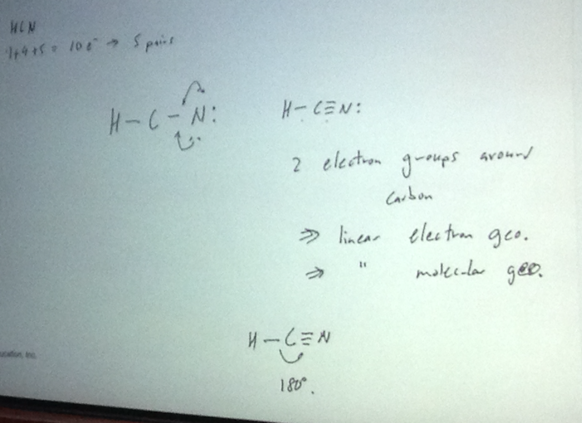 HCN
1+4+5 = 10 e⁻ → 5 pairs
H – C – N:
H – C≡N:
2 electron groups around
carbon
⇒ linear electron geo.
⇒ " molecular geo.
H – C≡N
180°.
Inc.